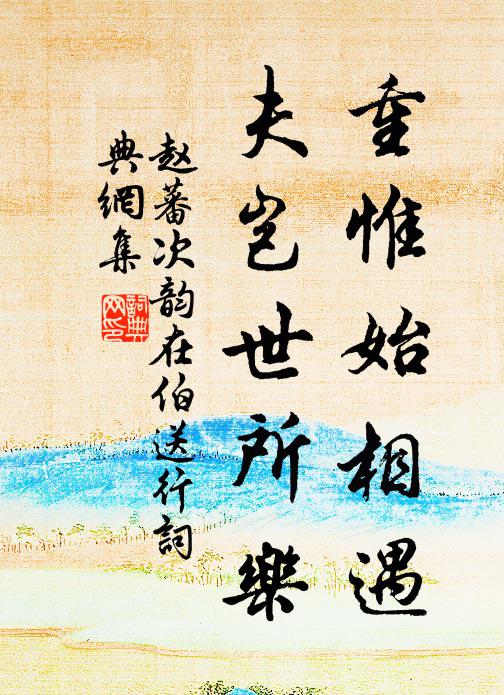 重惟始相遇
夫岂世所樂
赵蕃次韵在伯送行詞
典網集
詞典网印